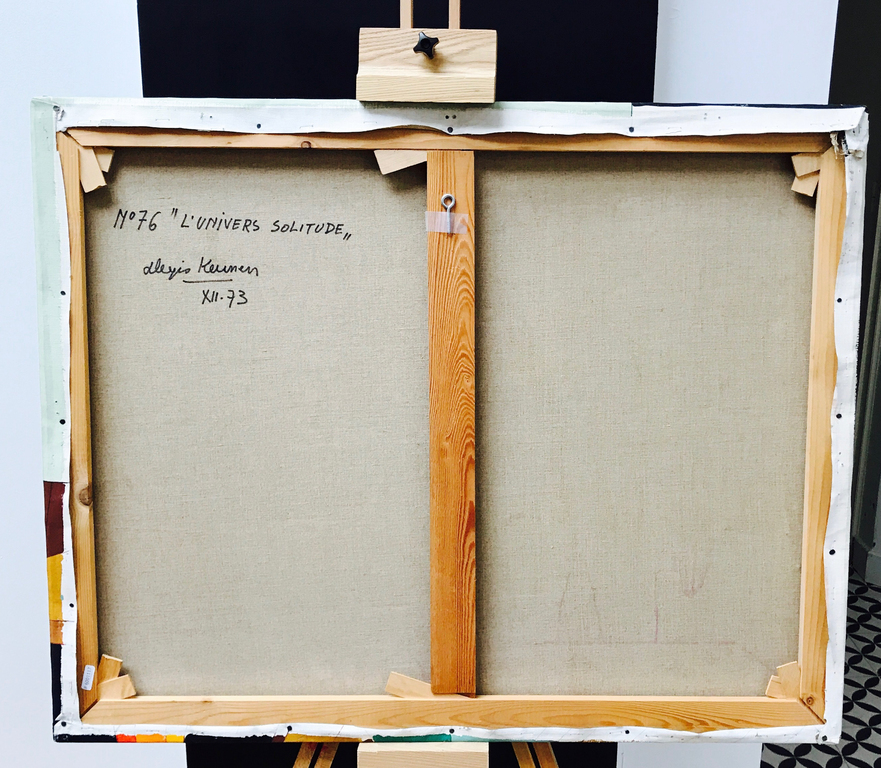 Nº76 "L'UNIVERS SOLITUDE„
Alexis Keunen
XII.73